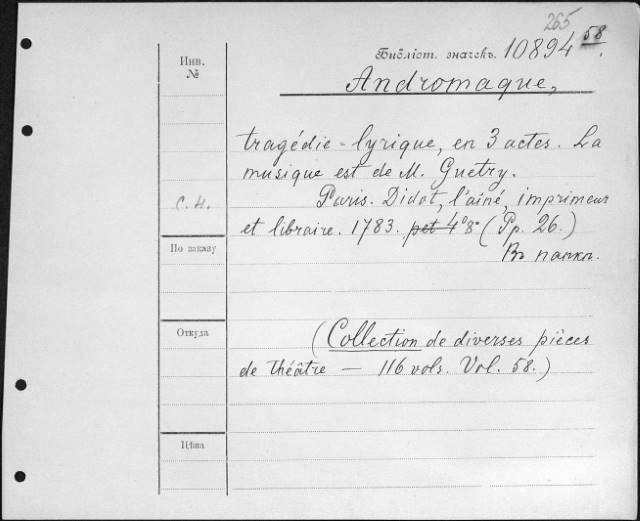 265
Библіот. значекъ. 10894 58.
Инв.
№
Andromaque,
tragédie-lyrique, en 3 actes. La
musique est de M. Guetry.
С.Н.
Paris. Didot, l'aîné, imprimeur
et libraire. 1783. pet 4° 8° (Pp. 26.)
По заказу
Въ папкѣ.
Откуда
(Collection de diverses pièces
de théâtre — 116 vols. Vol. 58.)
Цѣна